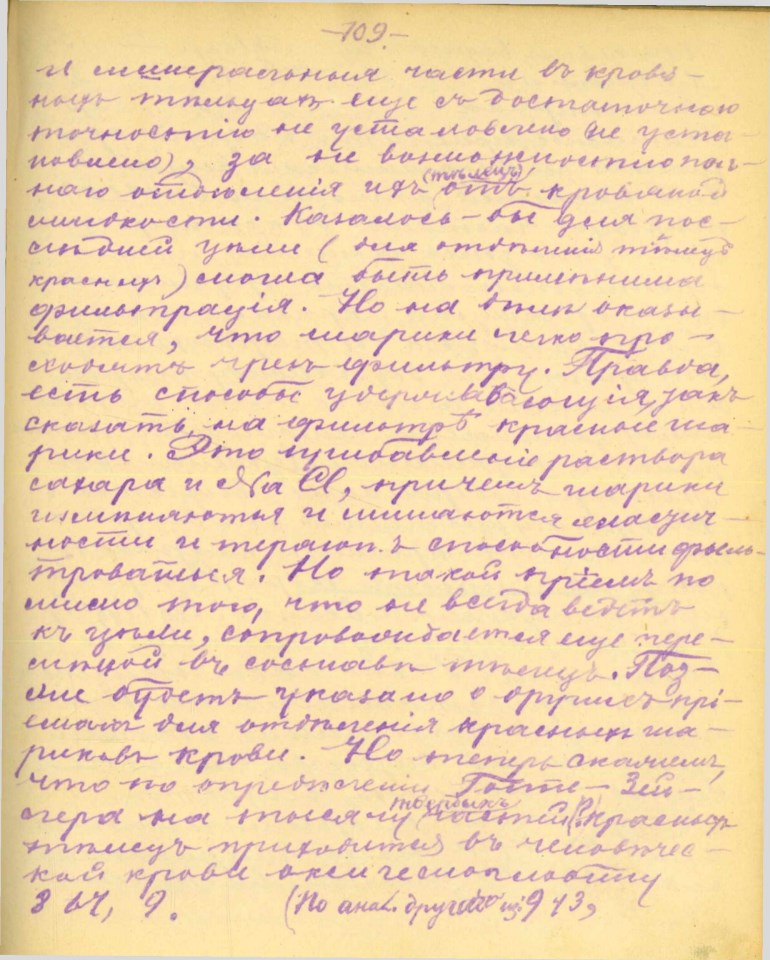 -109-
и минеральныя части въ кровя-
ныхъ тѣльцахъ еще съ достаточною
точностію не установлено (не уста-
новлено), за не возможностію пол-
наго отдѣленія ихъ (тѣлецъ) отъ кровяной
жидкости. Казалось-бы для пос-
лѣдней цѣли (для отдѣленія тѣлецъ
красныхъ) могла быть примѣнима
фильтрація. Но на дѣлѣ оказы-
вается, что шарики легко про-
ходятъ чрезъ фильтру. Правда,
есть способъ удерживающій, такъ
сказать, на фильтрѣ красные ша-
рики. Это прибавленіе раствора
сахара и NaCl, причемъ шарики
измѣняются и лишаются эластич-
ности и теряютъ способности филь-
троваться. Но такой пріемъ по
мимо того, что не всегда ведетъ
къ цѣли, сопровождается еще пере-
мѣной въ составѣ тѣлецъ. Поз-
же будетъ указано о другихъ прі-
емахъ для отдѣленія красныхъ ша-
риковъ крови. Но теперь скажемъ,
что по опредѣленію Гоппе-Зей-
лера на тысячу частей красныхъ
тѣлецъ приходится въ человѣчес-
кой крови оксигемоглобину
867, 9. (По анал. другого из 943,